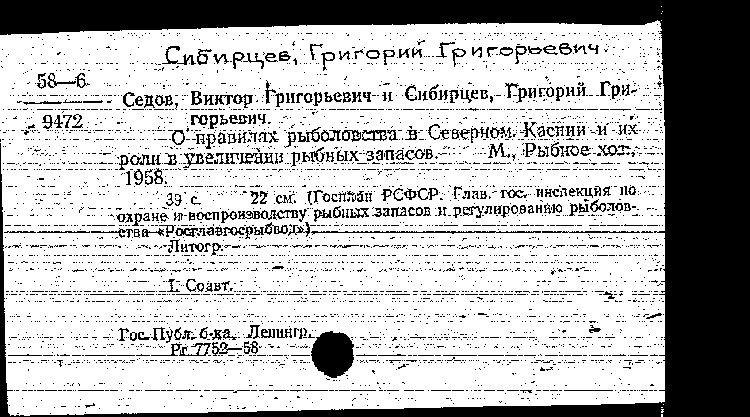 Сибирцев, Григорий Григорьевич.
58—6
9472
Седов, Виктор Григорьевич и Сибирцев, Григорий Гри-
горьевич.
О правилах рыболовства в Северном Каспии и их
роли в увеличении рыбных запасов. М., Рыбное хоз.,
1958.
39 с. 22 см. (Госплан РСФСР. Глав. гос. инспекция по
охране и воспроизводству рыбных запасов и регулированию рыболов-
ства «Росглавгосрыбвод»).
Литогр.
I. Соавт.
Гос. Публ. б-ка. Ленингр.
Рг 7752—58